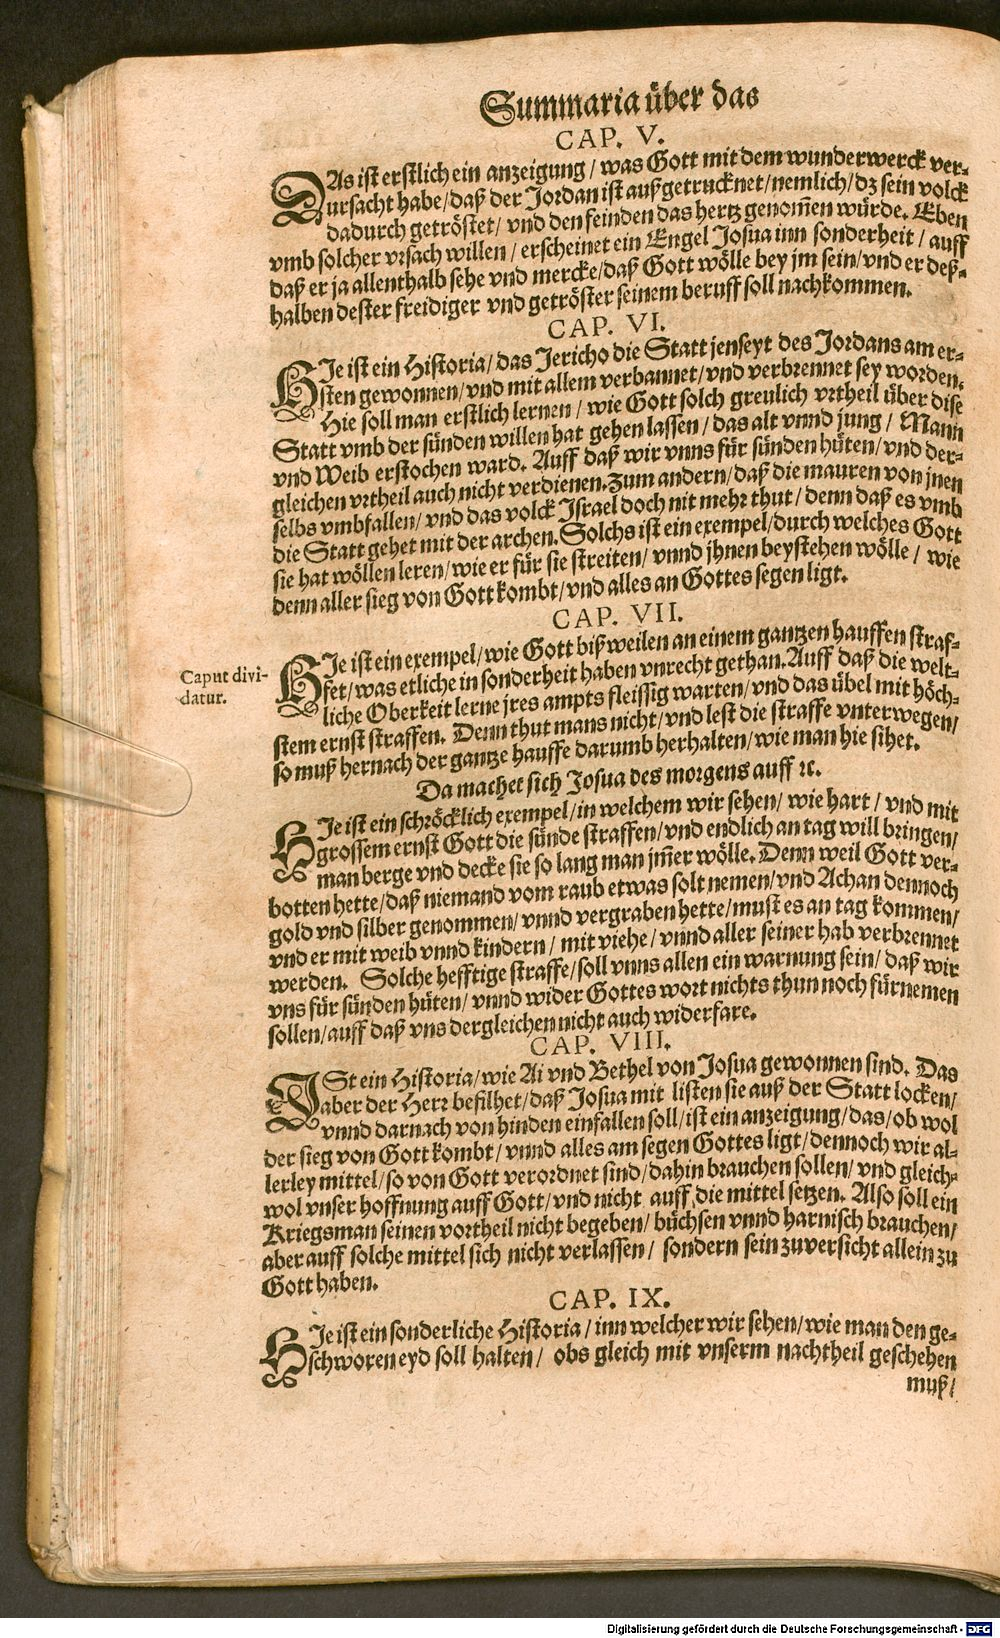 Summaria über das
CAP. V.
DAs ist erstlich ein anzeigung / was Gott mit dem wunderwerck ver-
ursacht habe / daß der Jordan ist außgetrucknet / nemlich / dz sein volck
dadurch getröstet / vnd den feinden das hertz genom̃en würde. Eben
vmb solcher vrsach willen / erscheinet ein Engel Josua inn sonderheit / auff
daß er ja allenthalb sehe vnd mercke / daß Gott wölle bey jm sein / vnd er deß-
halben dester freidiger vnd getröster seinem beruff soll nachkommen.
CAP. VI.
HIe ist ein Historia / das Jericho die Statt jenseyt des Jordans am er-
sten gewonnen / vnd mit allem verbannet / vnd verbrennet sey worden.
Hie soll man erstlich lernen / wie Gott solch greulich vrtheil über dise
Statt vmb der sünden willen hat gehen lassen / das alt vnnd jung / Mann
vnd Weib erstochen ward. Auff daß wir vnns für sünden hüten / vnd der-
gleichen vrtheil auch nicht verdienen. Zum andern / daß die mauren von jnen
selbs vmbfallen / vnd das volck Israel doch nit mehr thut / denn daß es vmb
die Statt gehet mit der archen. Solchs ist ein exempel / durch welches Gott
sie hat wöllen leren / wie er für sie streiten / vnnd jhnen beystehen wölle / wie
denn aller sieg von Gott kombt / vnd alles an Gottes segen ligt.
CAP. VII.
Caput divi-
datur.
HIe ist ein exempel / wie Gott bißweilen an einem gantzen hauffen straf-
fet / was etliche in sonderheit haben vnrecht gethan. Auff daß die welt-
liche Oberkeit lerne jres ampts fleissig warten / vnd das übel mit höch-
stem ernst straffen. Denn thut mans nicht / vnd lest die straffe vnterwegen /
so muß hernach der gantze hauffe darumb herhalten / wie man hie sihet.
Da machet sich Josua des morgens auff ꝛc.
HIe ist ein schröcklich exempel / in welchem wir sehen / wie hart / vnd mit
grossem ernst Gott die sünde straffen / vnd endlich an tag will bringen /
man berge vnd decke sie so lang man jm̃er wölle. Denn weil Gott ver-
botten hette / daß niemand vom raub etwas solt nemen / vnd Achan dennoch
gold vnd silber genommen / vnnd vergraben hette / must es an tag kommen /
vnd er mit weib vnnd kindern / mit viehe / vnnd aller seiner hab verbrennet
werden. Solche hefftige straffe / soll vnns allen ein warnung sein / daß wir
vns für sünden hüten / vnnd wider Gottes wort nichts thun noch fürnemen
sollen / auff daß vns dergleichen nicht auch widerfare.
CAP. VIII.
ISt ein Historia / wie Ai vnd Bethel von Josua gewonnen sind. Das
aber der Herr befilhet / daß Josua mit listen sie auß der Statt locken /
vnnd darnach von hinden einfallen soll / ist ein anzeigung / das / ob wol
der sieg von Gott kombt / vnnd alles am segen Gottes ligt / dennoch wir al-
lerley mittel / so von Gott verordnet sind / dahin brauchen sollen / vnd gleich-
wol vnser hoffnung auff Gott / vnd nicht auff die mittel setzen. Also soll ein
Kriegsman seinen vortheil nicht begeben / büchsen vnnd harnisch brauchen /
aber auff solche mittel sich nicht verlassen / sondern sein zuversicht allein zu
Gott haben.
CAP. IX.
HIe ist ein sonderliche Historia / inn welcher wir sehen / wie man den ge-
schworen eyd soll halten / obs gleich mit vnserm nachtheil geschehen
muß /
Digitalisierung gefördert durch die Deutsche Forschungsgemeinschaft - DFG